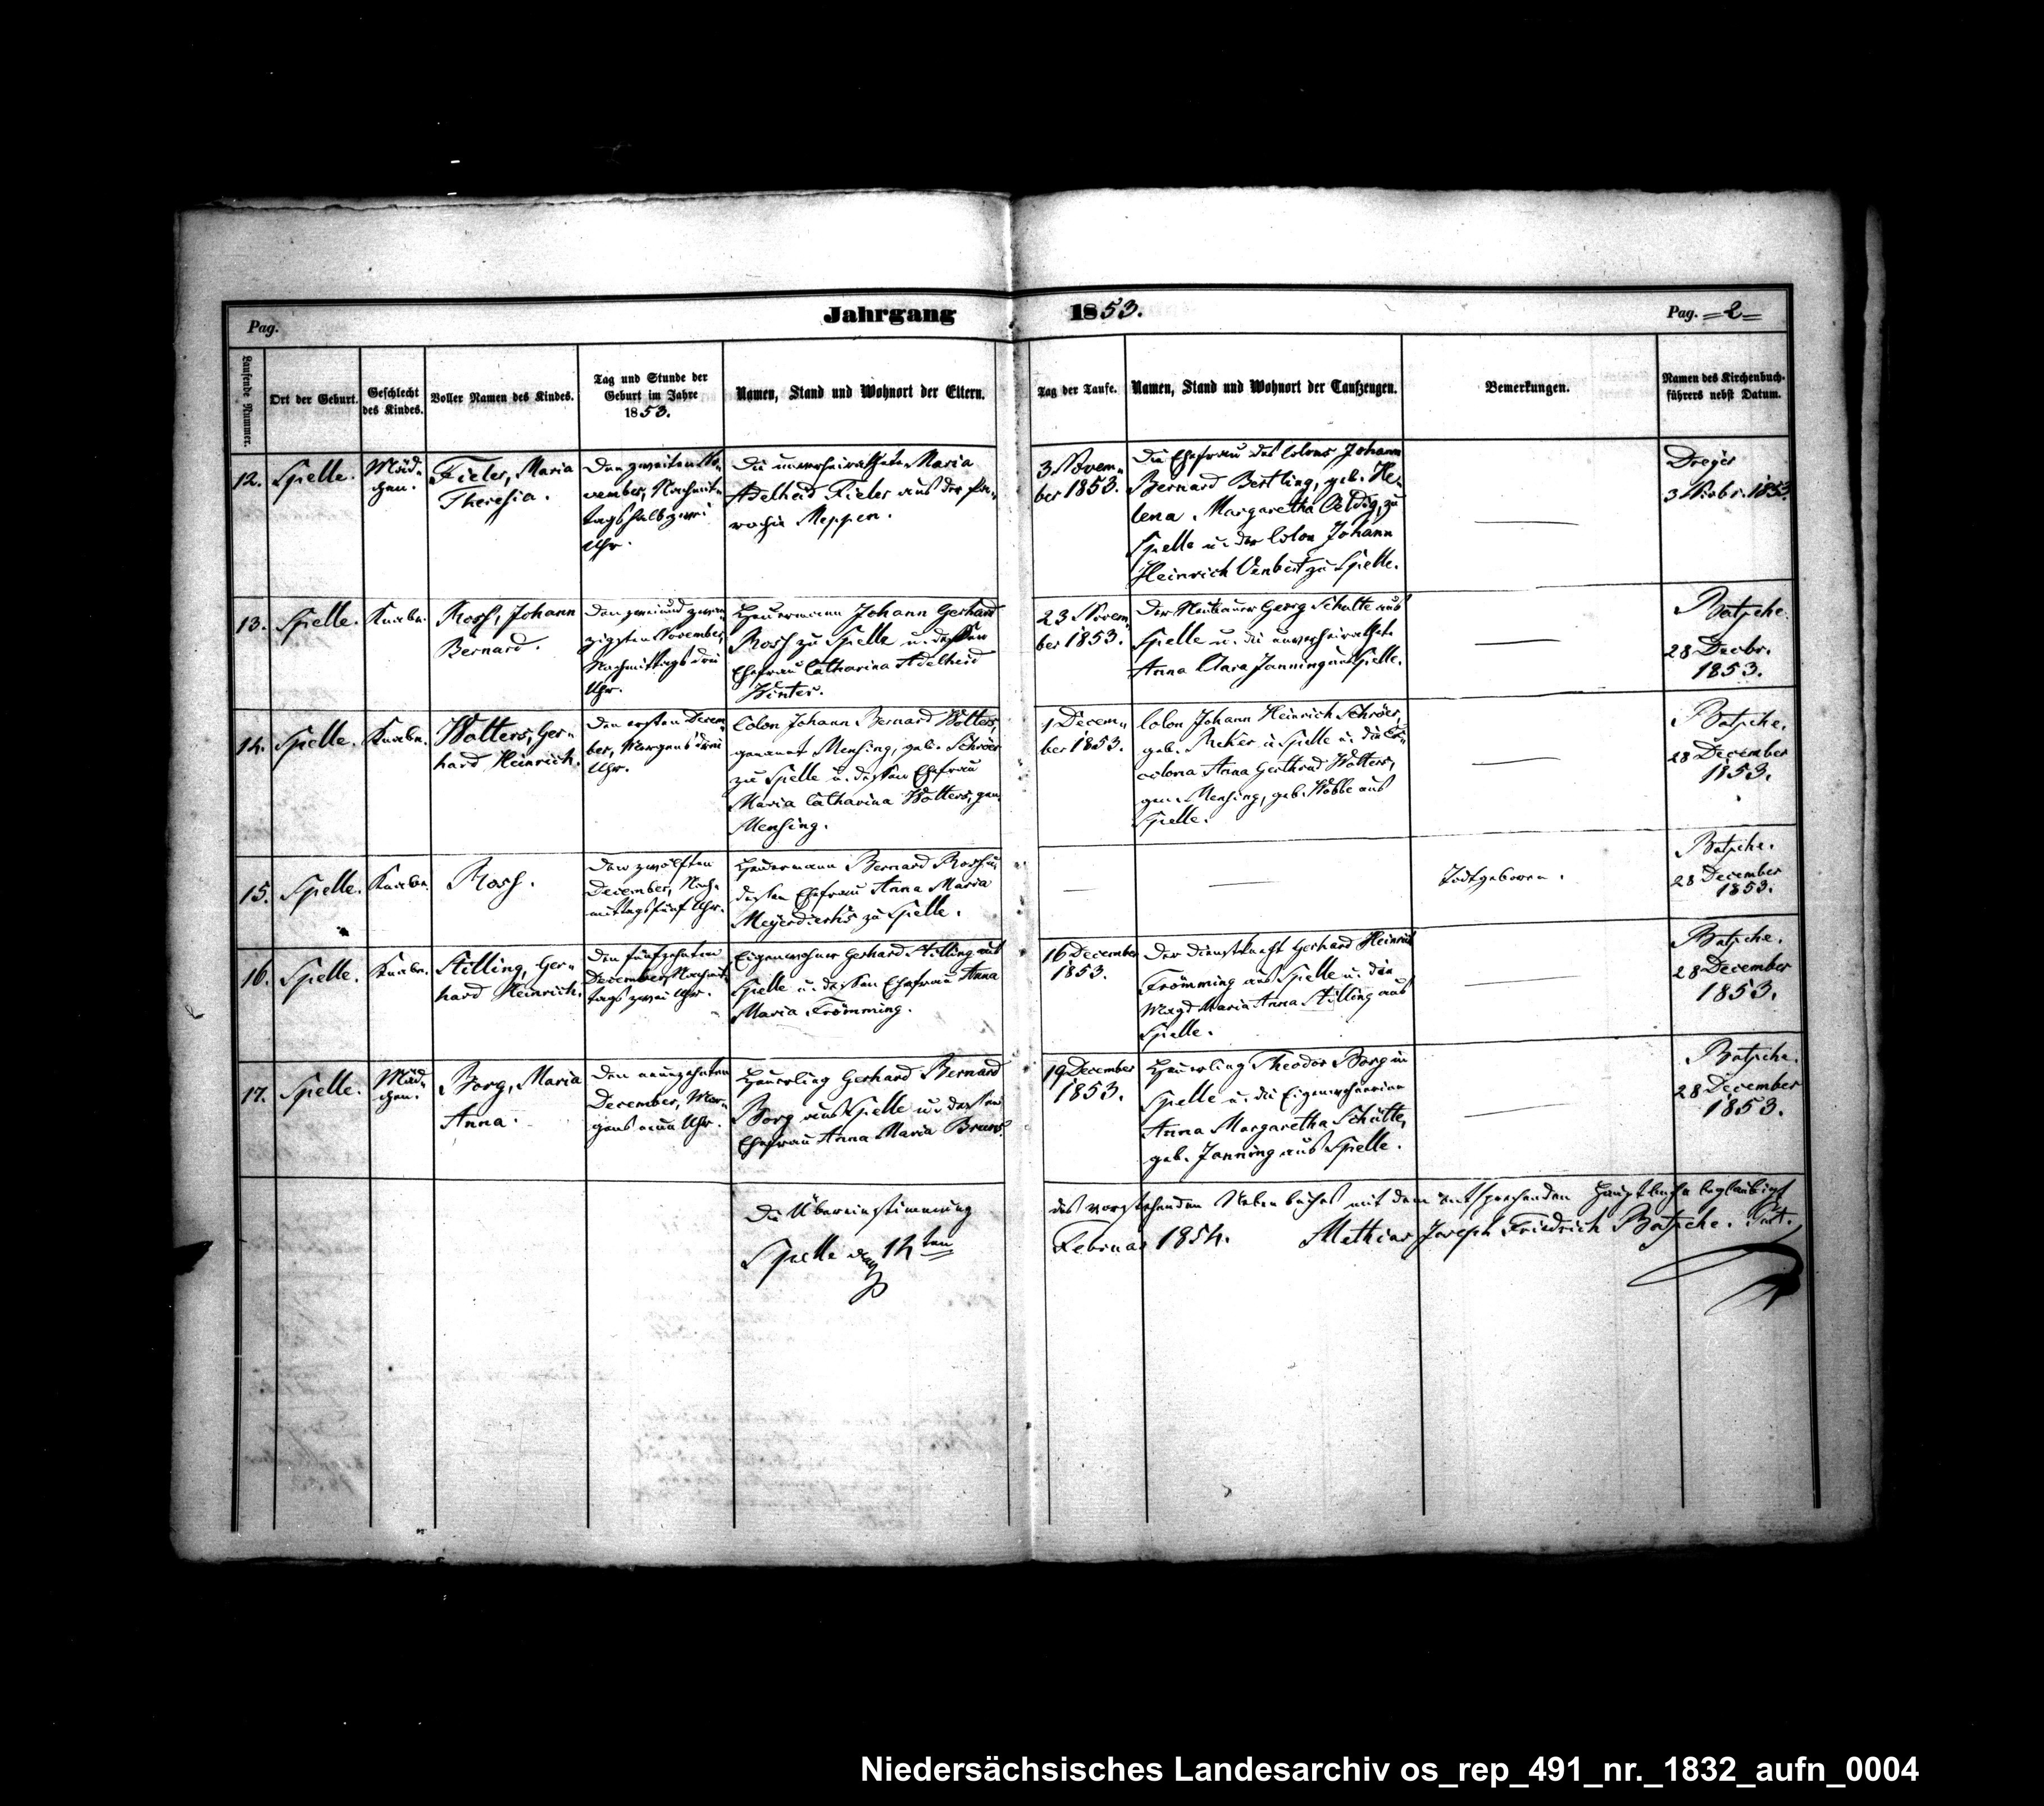 Pag.
Jahrgang 1853.
Pag. =2=
Laufende Nummer.
Ort der Geburt.
Geschlecht
des Kindes.
Voller Namen des Kindes.
Tag und Stunde der
Geburt im Jahre
1853.
Namen, Stand und Wohnort der Eltern.
Tag der Taufe.
Namen, Stand und Wohnort der Taufzeugen.
Bemerkungen.
Namen des Kirchenbuch-
führers nebst Datum.
12.
Spelle.
Mäd-
chen.
Fieler, Maria
Theresia.
Den zweiten No-
vember, Nachmit-
tags halb zwei
Uhr.
Die unverheirathete Maria
Adelheid Fieler aus der Pa-
rochie Meppen.
3 Novem-
ber 1853.
Die Ehefrau des Colons Johann
Bernard Bertling, geb. He-
lena Margaretha zu
Spelle u. der Colon Johann
Heinrich zu Spelle.
Dreyer
3 Novbr. 1853.
13.
Spelle.
Knabe.
Rosh, Johann
Bernard.
Den zweiundzwan-
zigsten November,
Nachmittags drei
Uhr.
Heuermann Johann Gerhard
Rosh zu Spelle u. dessen
Ehefrau Catharina Adelheid
Winter.
23 Novem-
ber 1853.
Der Neubauer Georg Schulte aus
Spelle u. die unverheirathete
Anna Clara Janning aus Spelle.
Botsche.
28 Decbr.
1853.
14.
Spelle.
Knabe.
Wolters, Ger-
hard Heinrich.
Den ersten Decem-
ber, Morgens drei
Uhr.
Colon Johann Bernard Wolters,
genannt Mensing, geb. Schröer
zu Spelle u. dessen Ehefrau
Maria Catharina Wolters, gen.
Mensing.
1 Decem-
ber 1853.
Colon Johann Heinrich Schröer,
geb. Reker u. die
colona Anna Gerthrud Wolters,
gen. Mensing, geb. Wobbe aus
Spelle.
Botsche.
28 December
1853.
15.
Spelle.
Knabe.
Rosh.
Den zwölften
December, Nach-
mittags fünf Uhr.
Heuermann Bernard Rosh u.
dessen Ehefrau Anna Maria
Meyerdierks zu Spelle.
Todtgeboren.
Botsche.
28 December
1853.
16.
Spelle.
Knabe.
Stilling, Ger-
hard Heinrich.
Den fünfzehnten
December, Nachmit-
tags zwei Uhr.
Eigenwohner Gerhard Stilling aus
Spelle u. dessen Ehefrau Anna
Maria Frömming.
16 December
1853.
Der Dienstknecht Gerhard Heinrich
Frömming aus Spelle u. die
Magd Maria Anna Stilling aus
Spelle.
Botsche.
28 December
1853.
17.
Spelle.
Mäd-
chen.
Borg, Maria
Anna.
Den neunzehnten
December, Mor-
gens neun Uhr.
Heuerling Gerhard Bernard
Borg aus Spelle u. dessen
Ehefrau Anna Maria Bruns.
19 December
1853.
Heuerling Theodor Borg in
Spelle u. die Eigenwohnerinn
Anna Margaretha Schütte,
geb. Janning aus Spelle.
Botsche.
28 December
1853.
Die Übereinstimmung des vorstehenden Nebenbuches mit dem entsprechenden Hauptbuche beglaubigt
Spelle den 14ten Februar 1854. Mathias Joseph Friedrich Botsche. Past.
Niedersächsisches Landesarchiv os_rep_491_nr._1832_aufn_0004